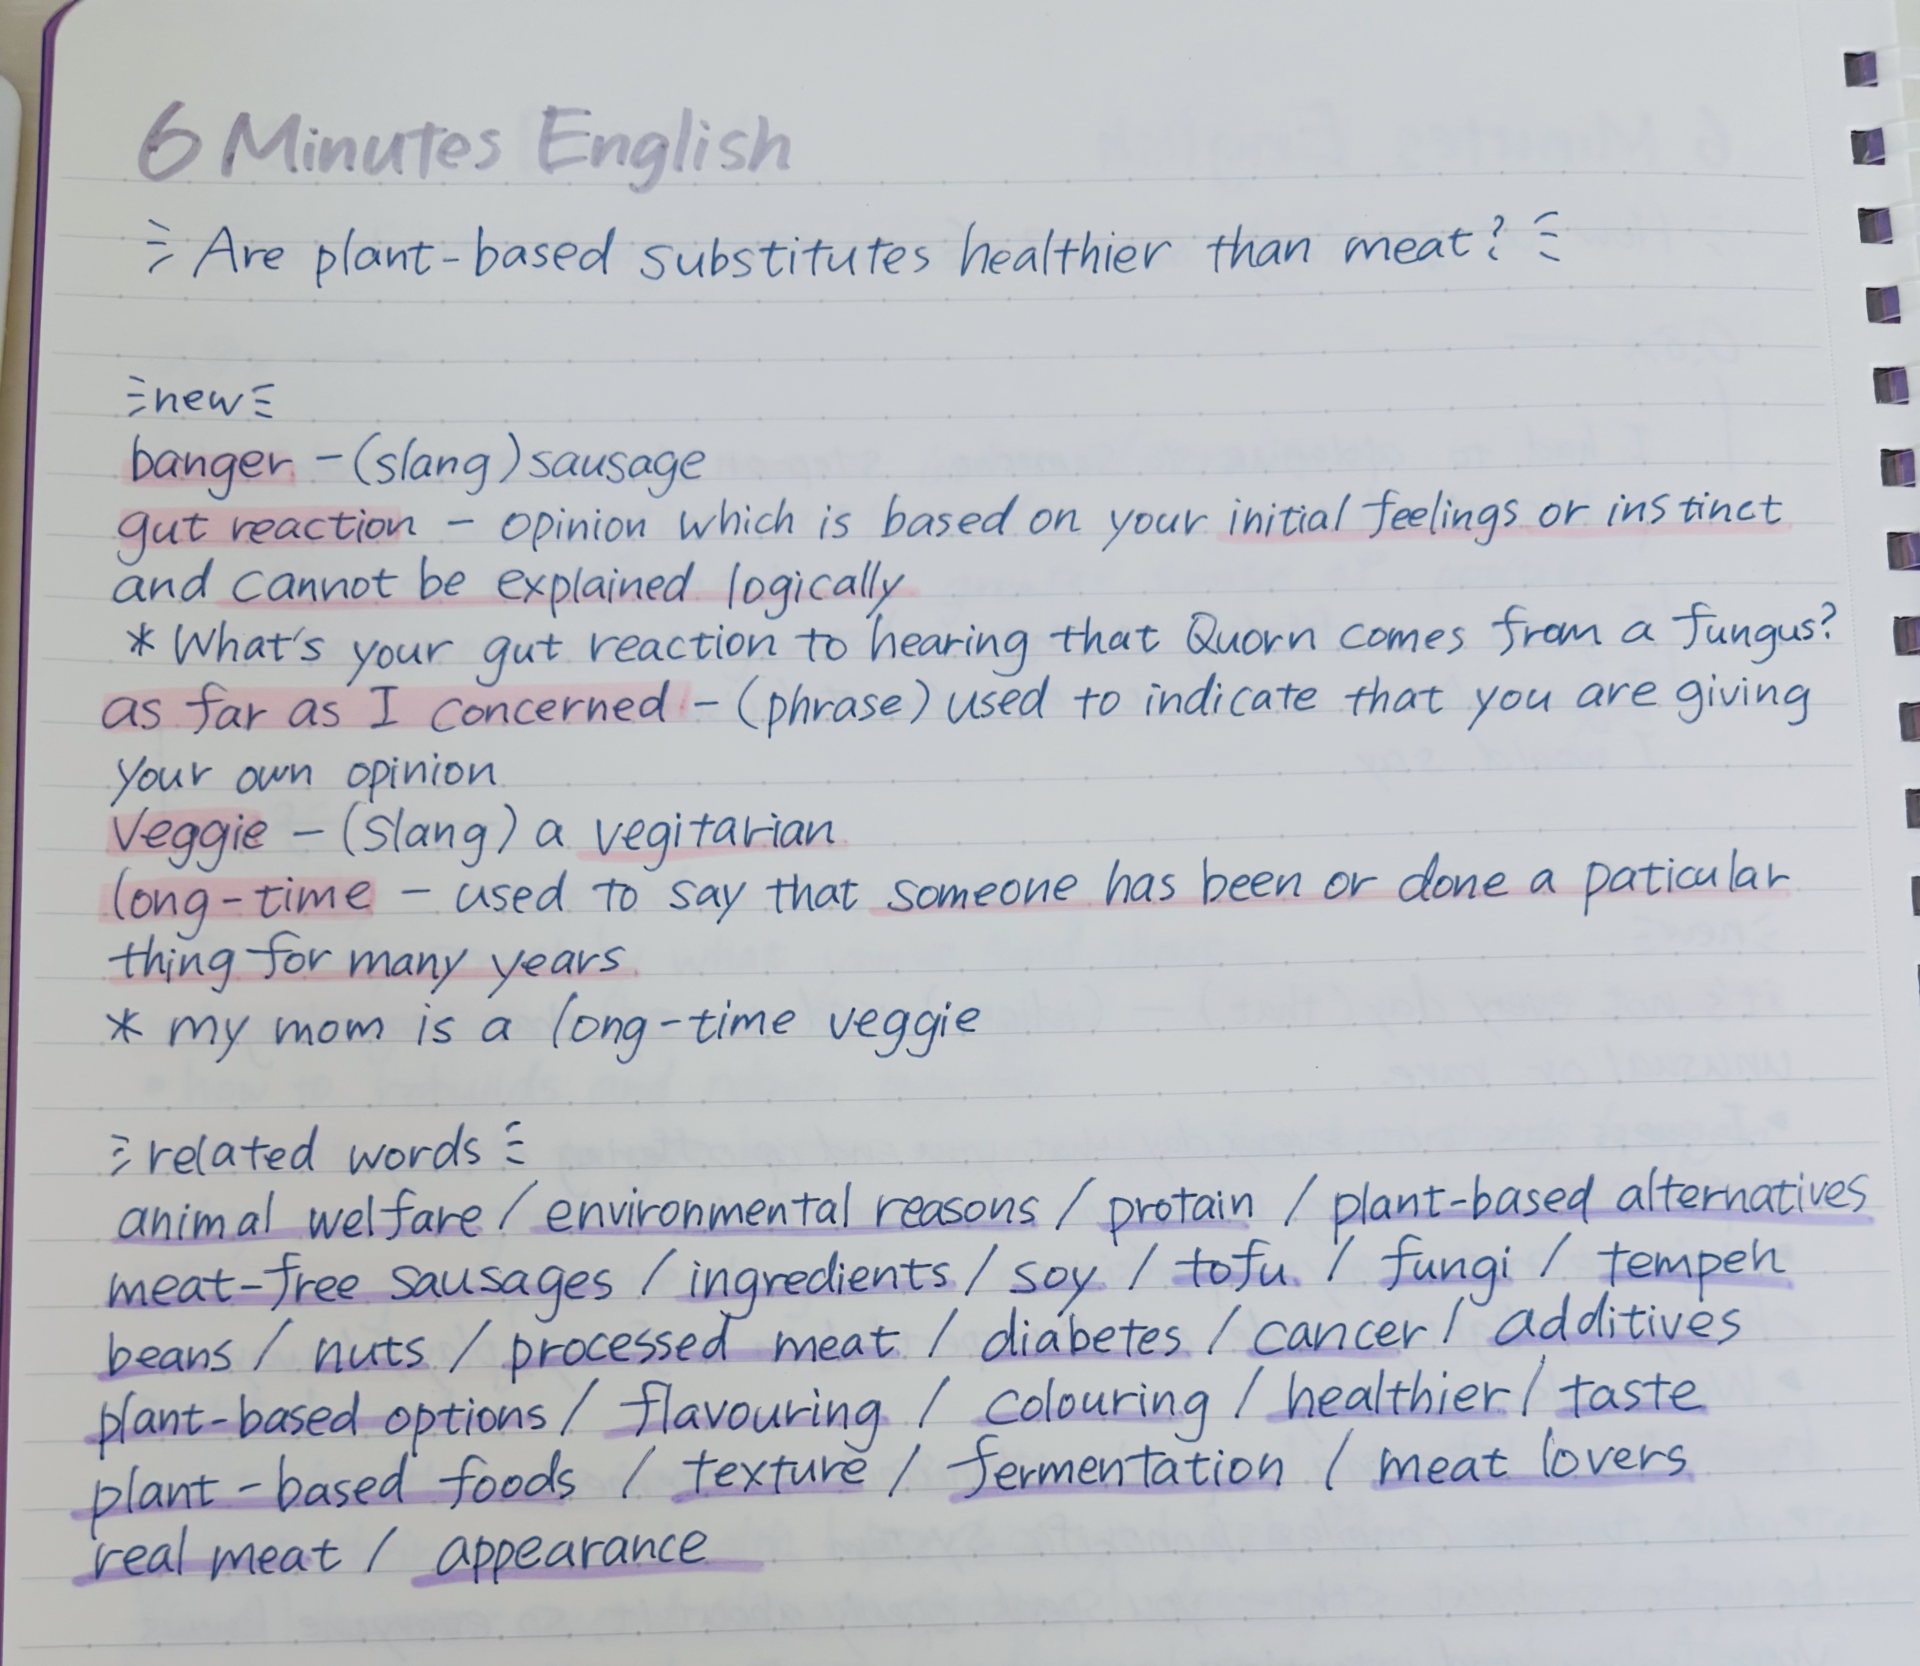 6 Minutes English
Are plant-based substitutes healthier than meat?
new
banger - (slang) sausage
gut reaction - opinion which is based on your initial feelings or instinct
and cannot be explained logically
* What's your gut reaction to hearing that Quorn comes from a fungus?
as far as I concerned - (phrase) used to indicate that you are giving
your own opinion
Veggie - (slang) a vegitarian
long-time - used to say that someone has been or done a paticular
thing for many years
* my mom is a long-time veggie
related words
animal welfare / environmental reasons / protain / plant-based alternatives
meat-free sausages / ingredients / soy / tofu / fungi / tempeh
beans / nuts / processed meat / diabetes / cancer / additives
plant-based options / flavouring / colouring / healthier / taste
plant-based foods / texture / fermentation / meat lovers
real meat / appearance